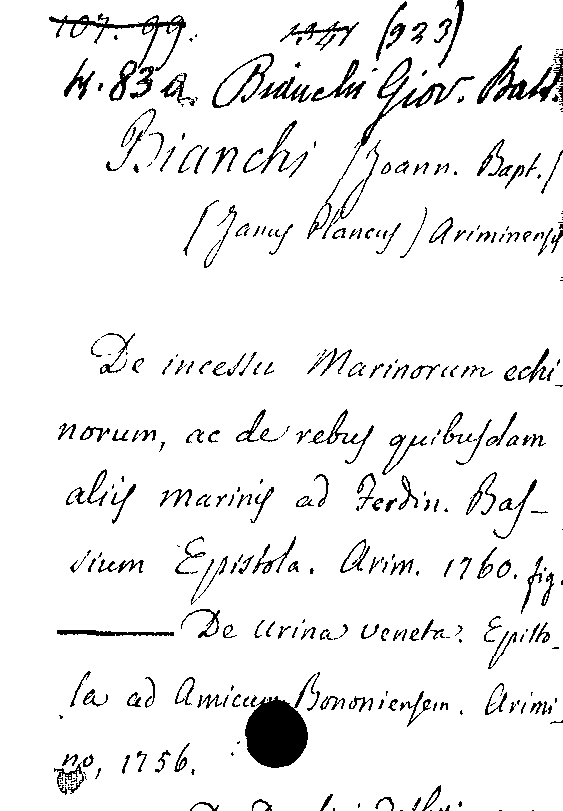 107. 99. (923)
4.83a. Bianchi Giov. Batt.
Bianchi (Joann. Bapt.)
(Janus Plancus) Ariminensis
De incessu Marinorum echi-
norum, ac de rebus quibusdam
aliis marinis ad Ferdin. Bas-
sium Epistola. Arim. 1760. fig.
De Urina Veneta. Episto-
la ad Amicum Bononiensem. Arimi-
no, 1756.